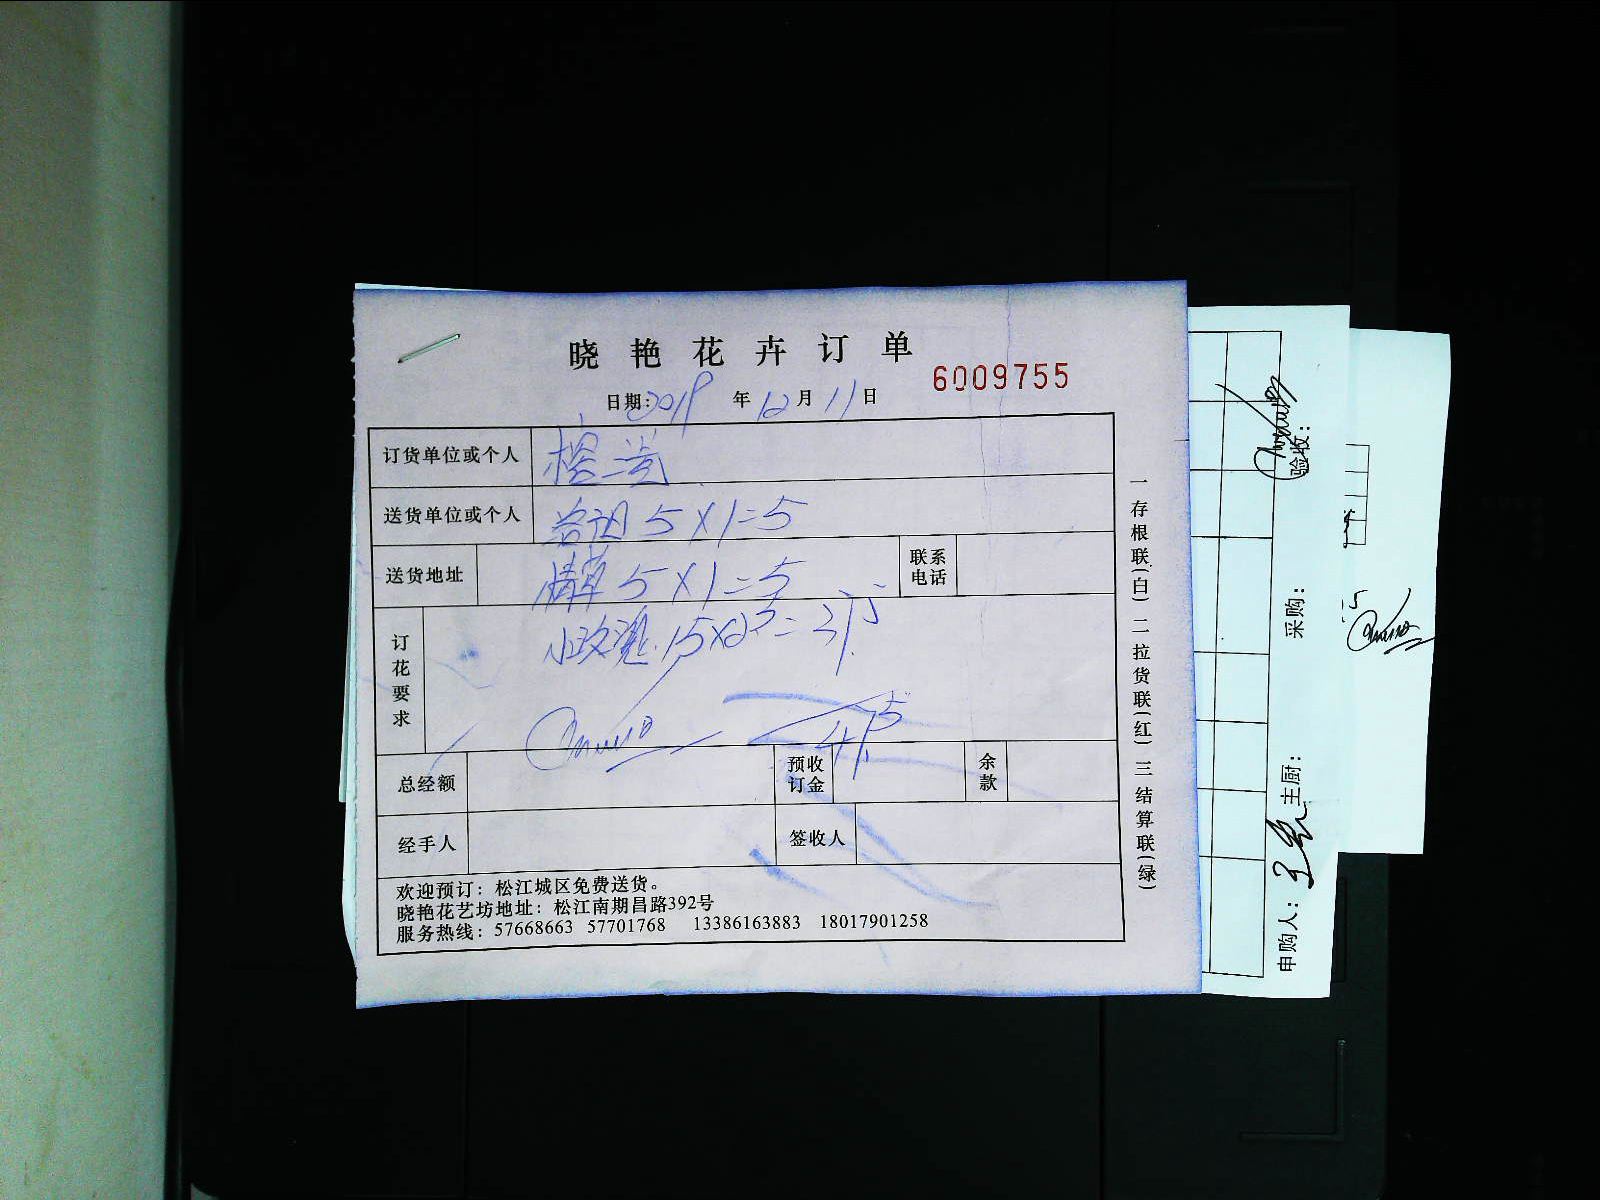 晓艳花卉订单
6009755
日期: 2019年12月11日
订货单位或个人
送货单位或个人 5×1=5
送货地址 5×1=5 联系电话
订花要求 小玫瑰 15×2.5=37.5
47.5
总经额 预收订金 余款
经手人 签收人
欢迎预订：松江城区免费送货。
晓艳花艺坊地址：松江南期昌路392号
服务热线：57668663 57701768 13386163883 18017901258
一存根联(白) 二拉货联(红) 三结算联(绿)
申购人： 主厨： 采购： 验收：